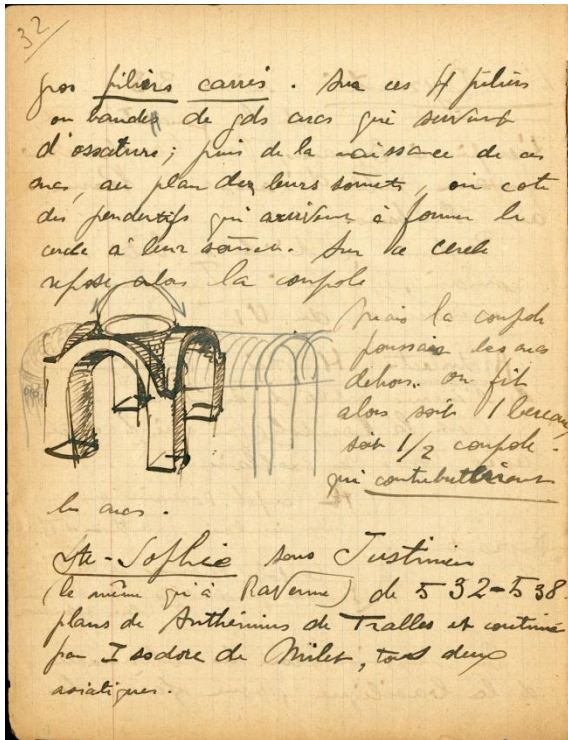 32
gros piliers carrés. Sur ces 4 piliers
on bande de gds arcs qui servent
d'ossature; puis de la naissance de ces
arcs, au plan des leurs somets, on
des pendentifs qui arrivent à former le
cercle à leur somet. Sur ce cercle
repose alors la coupole
Mais la coupole
poussait les arcs
dehors. on fit
alors soit 1 berceau,
soit 1/2 coupole.
qui contrebutteront
les arcs.
Ste-Sophie sous Justinien
(le même qu'à Ravenne) de 532-538.
plans de Anthémius de Tralles et continué
par Isodore de Milet, tous deux
asiatiques.